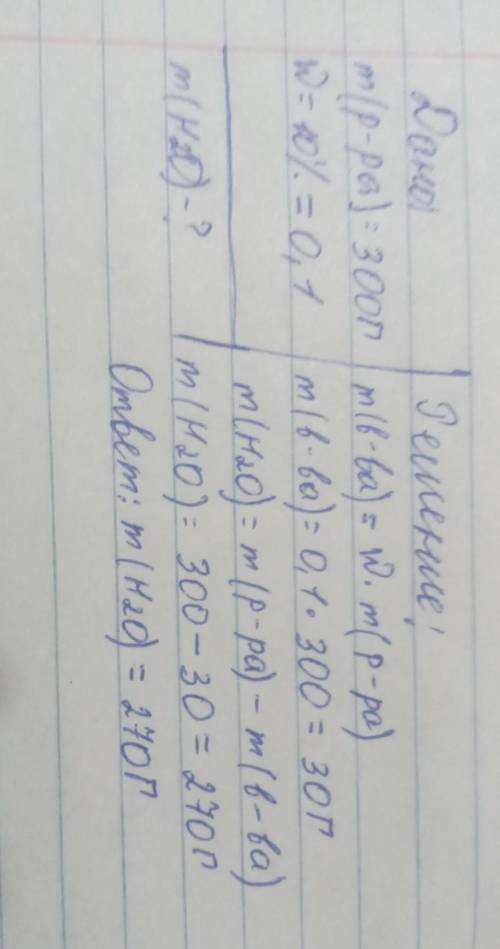 Дано:
m(р-ра) = 300г
W = 10% = 0,1
m(H2O) - ?
Решение:
m(в-ва) = W · m(р-ра)
m(в-ва) = 0,1 · 300 = 30г
m(H2O) = m(р-ра) - m(в-ва)
m(H2O) = 300 - 30 = 270г
Ответ: m(H2O) = 270г